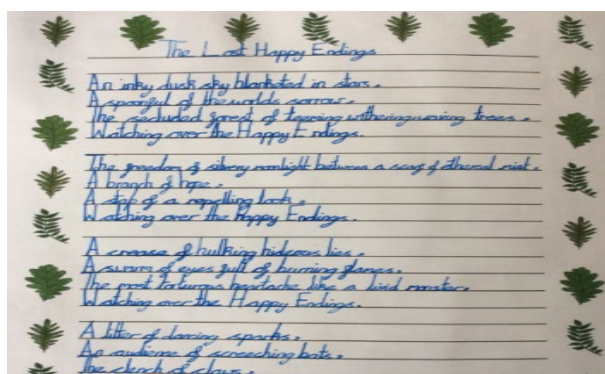 The Lost Happy Endings
An inky dusk sky blanketed in stars.
A spoonful of the worlds sorrow.
The secluded forest of tearing withering waving trees.
Watching over the Happy Endings.
The freedom of silvery moonlight between a scarf of ethereal mist.
A branch of hope.
A stab of a repelling look.
Watching over the Happy Endings.
A crease of hulking hideous lies.
A swarm of eyes full of burning flames.
The most torturous heartache like a livid monster.
Watching over the Happy Endings.
A litter of dancing sparks.
An audience of screeching bats.
The clench of claws.